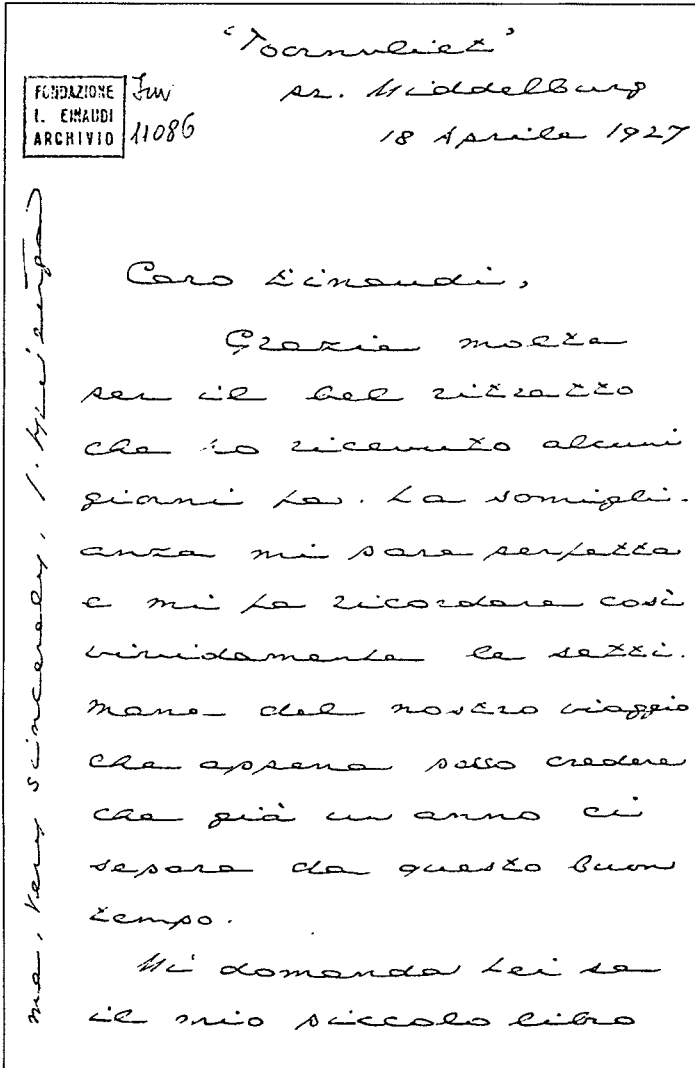 "Toornvliet"
pr. Middelburg
18 Aprile 1927
FONDAZIONE
L. EINAUDI
ARCHIVIO
11086
Caro Einaudi,
Grazie molte
per il bel ritratto
che ho ricevuto alcuni
giorni fa. La somigli-
anza mi pare perfetta
e mi fa ricordare così
vividamente le setti-
mane del nostro viaggio
che appena posso credere
che già un anno ci
separa da questo buon
tempo.
Mi domanda Lei se
il mio piccolo libro
me, very sincerely,